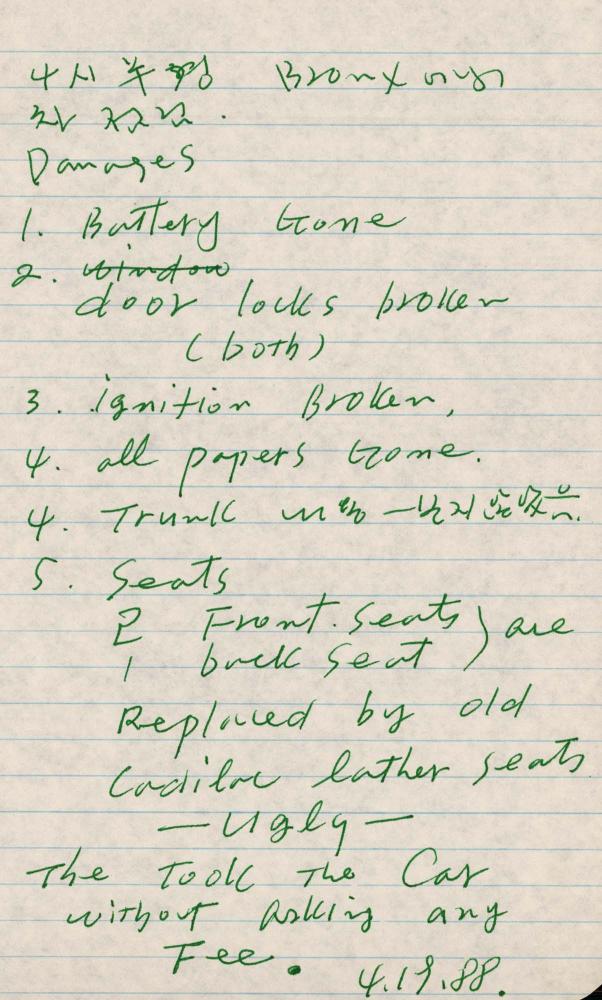 4시 Bronx 에서
차
Damages
1. Battery Gone
2. window
door locks broken
(both)
3. ignition Broken,
4. all papers Gone.
4. Trunk 내
5. Seats
2 Front. seats } are
1 back seat
Replaced by old
Cadilac lather seats
— Ugly —
The Took The Car
without Asking any
Fee.
4.19.88.